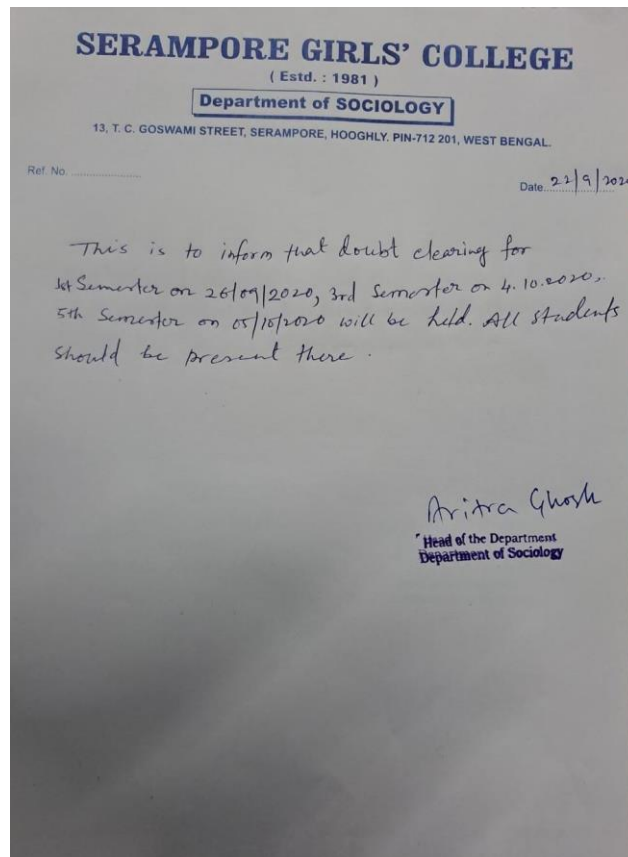 SERAMPORE GIRLS' COLLEGE
( Estd. : 1981 )
Department of SOCIOLOGY
13, T. C. GOSWAMI STREET, SERAMPORE, HOOGHLY. PIN-712 201, WEST BENGAL.
Ref. No. ........................
Date. 22/9/202
This is to inform that doubt clearing for
1st Semester on 26/09/2020, 3rd Semester on 4.10.2020,
5th Semester on 05/10/2020 will be held. All students
should be present there.
Aritra Ghosh
Head of the Department
Department of Sociology